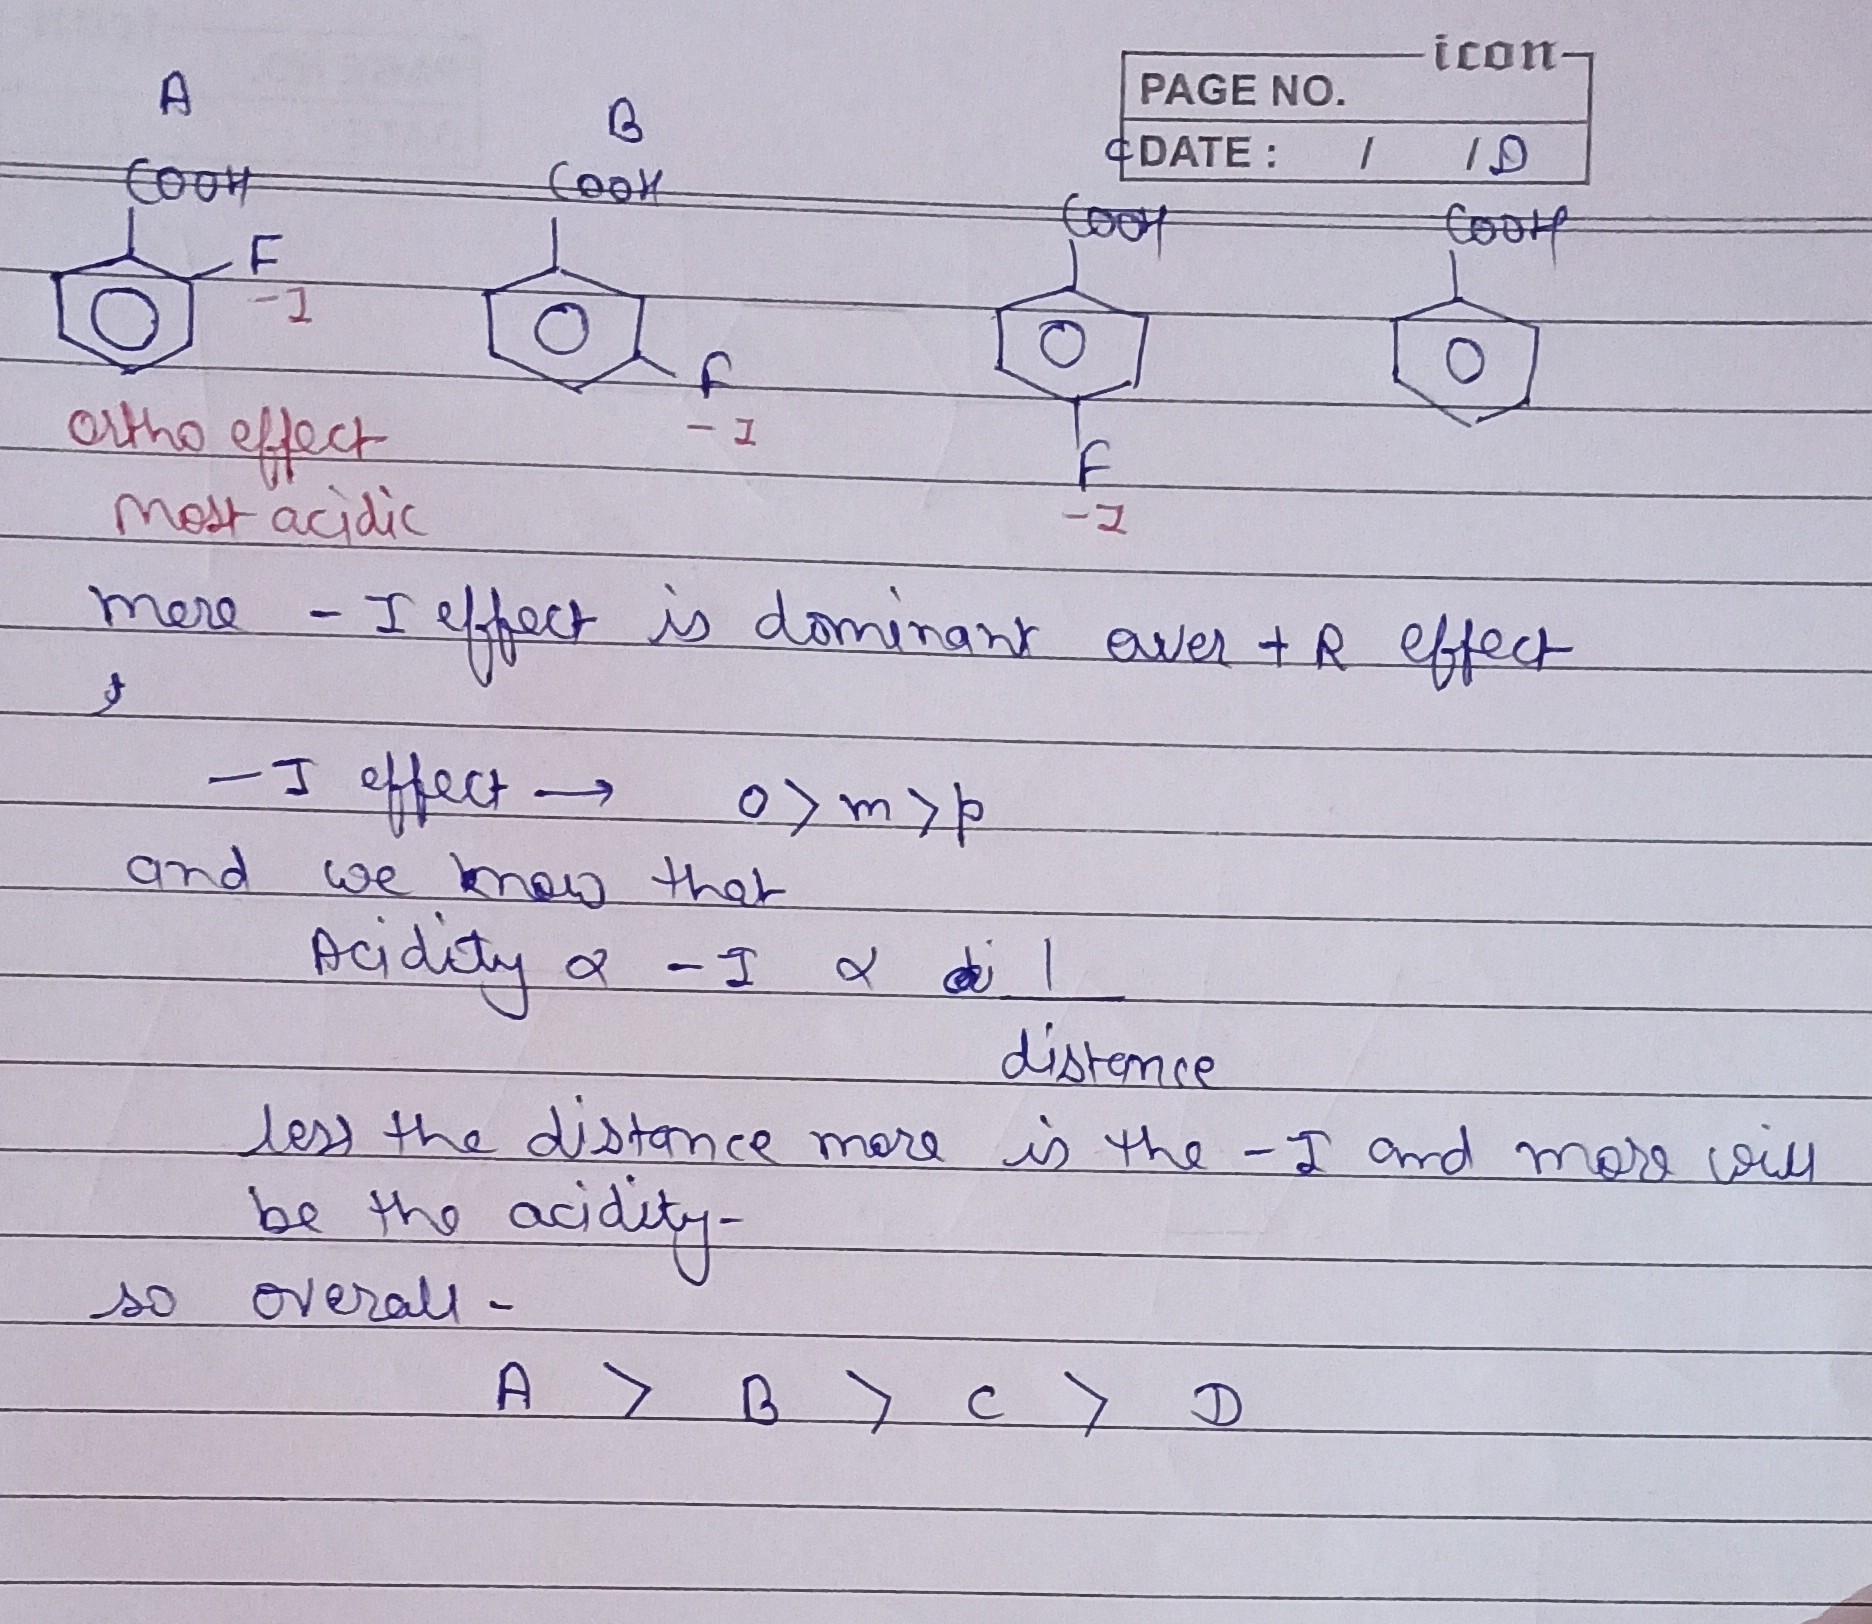 icon
PAGE NO.
DATE : / /
A
B
C
D
COOH
COOH
COOH
COOH
F
-I
F
-I
F
-I
Ortho effect
Most acidic
mere - I effect is dominant over + R effect
,
- I effect → o > m > p
and we know that
Acidity α - I α 1
distance
less the distance more is the - I and more will
be the acidity-
so overall -
A > B > C > D